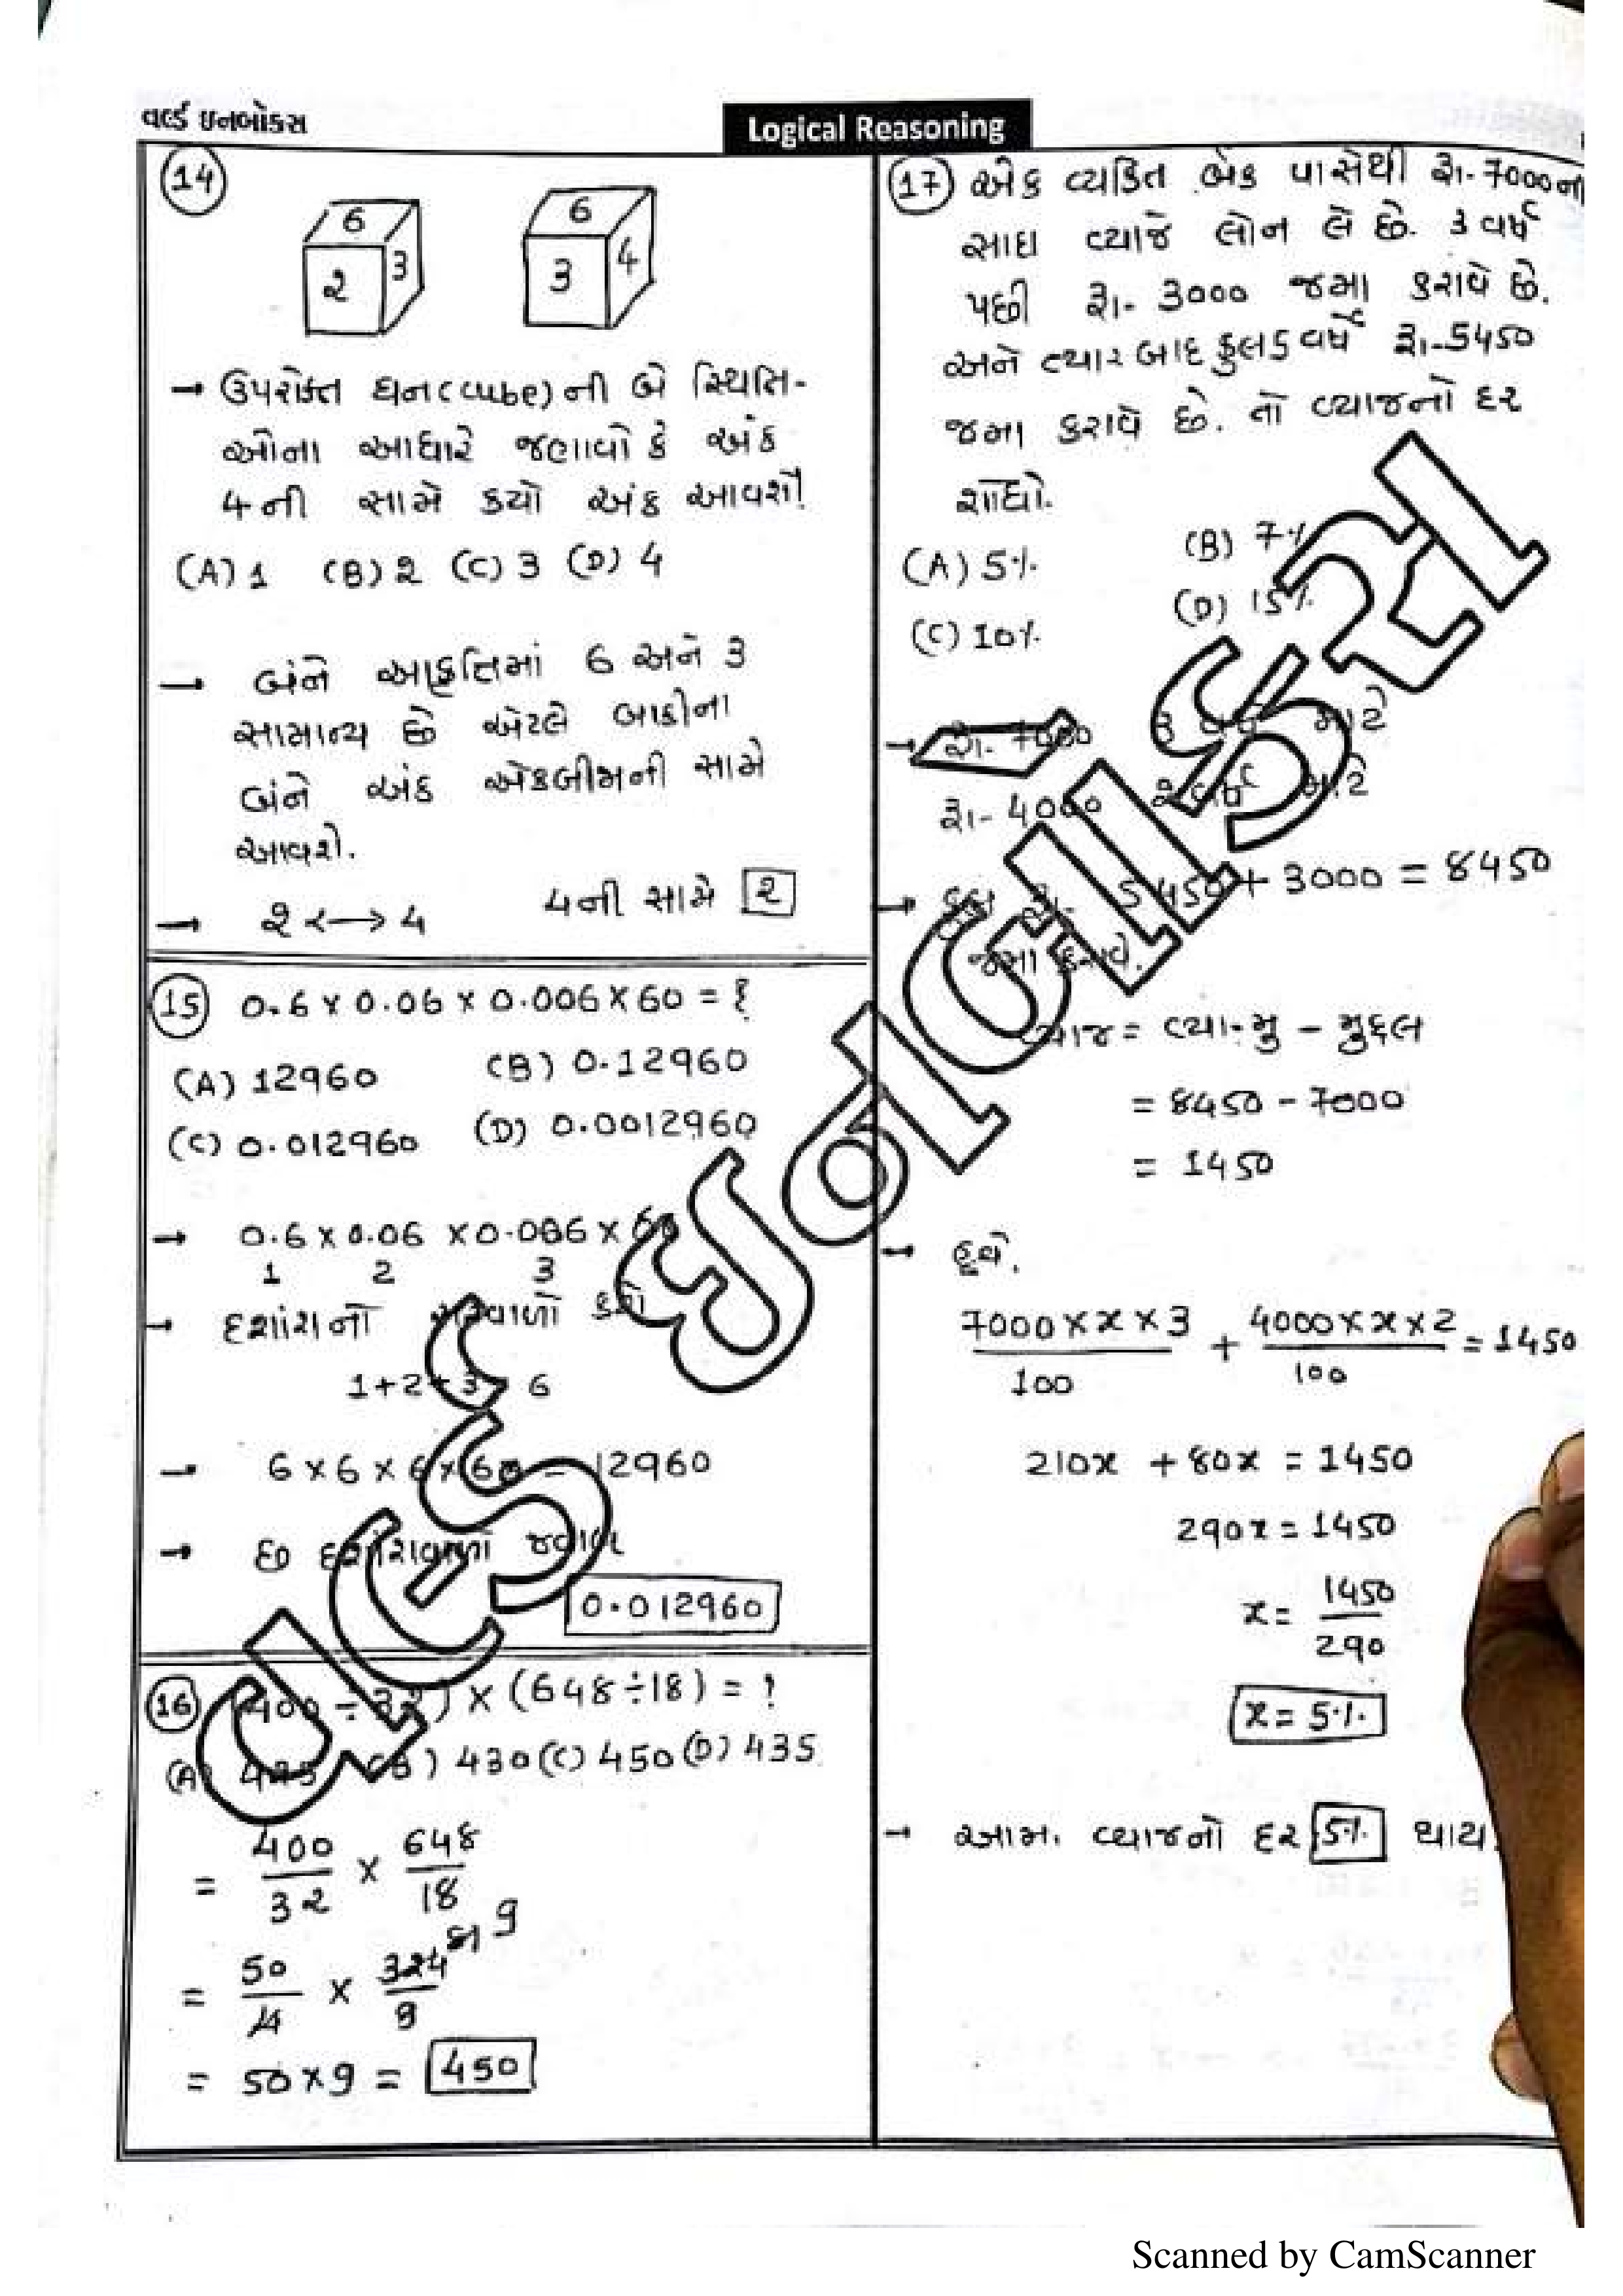 વર્લ્ડ ઇનબોક્સ
Logical Reasoning
14
6
2
3
6
3
4
→ ઉપરોક્ત ઘન(cube)ની બે સ્થિતિ-
ઓના આધારે જણાવો કે અંક
4ની સામે કયો અંક આવશે?
(A) 1 (B) 2 (C) 3 (D) 4
→ બંને આકૃતિમાં 6 અને 3
સામાન્ય છે એટલે બાકીના
બંને અંક એકબીજાની સામે
આવશે.
→ 2 ←→ 4 4ની સામે 2
15 0.6 × 0.06 × 0.006 × 60 = ?
(A) 12960 (B) 0.12960
(C) 0.012960 (D) 0.0012960
→ 0.6 × 0.06 × 0.006 × 60
1 2 3
→ દશાંશનો સરવાળો કરો
1+2+3 = 6
→ 6 × 6 × 6 × 60 = 12960
→ છ દશાંશવાળો જવાબ
0.012960
16 (400 ÷ 32) × (648 ÷ 18) = ?
(A) 425 (B) 430 (C) 450 (D) 435
= 400/32 × 648/18
= 50/4 × 324/9 9
= 50 × 9 = 450
17 એક વ્યક્તિ બેંક પાસેથી રૂા.7000ના
સાદા વ્યાજે લોન લે છે. 3 વર્ષ
પછી રૂા. 3000 જમા કરાવે છે.
અને ત્યાર બાદ કુલ 5 વર્ષે રૂા.5450
જમા કરાવે છે. તો વ્યાજનો દર
શોધો.
(A) 5% (B) 7%
(C) 10% (D) 15%
→ રૂા. 7000 3 વર્ષ માટે
રૂા. 4000 2 વર્ષ માટે
→ કુલ રૂા. 5450 + 3000 = 8450
જમા કરાવે.
વ્યાજ = વ્યા.મુ - મુદ્દલ
= 8450 - 7000
= 1450
→ હવે,
7000 × x × 3/100 + 4000 × x × 2/100 = 1450
210x + 80x = 1450
290x = 1450
x = 1450/290
x = 5%
→ આમ, વ્યાજનો દર 5% થાય.
વર્લ્ડ ઈનબોક્સ
Scanned by CamScanner